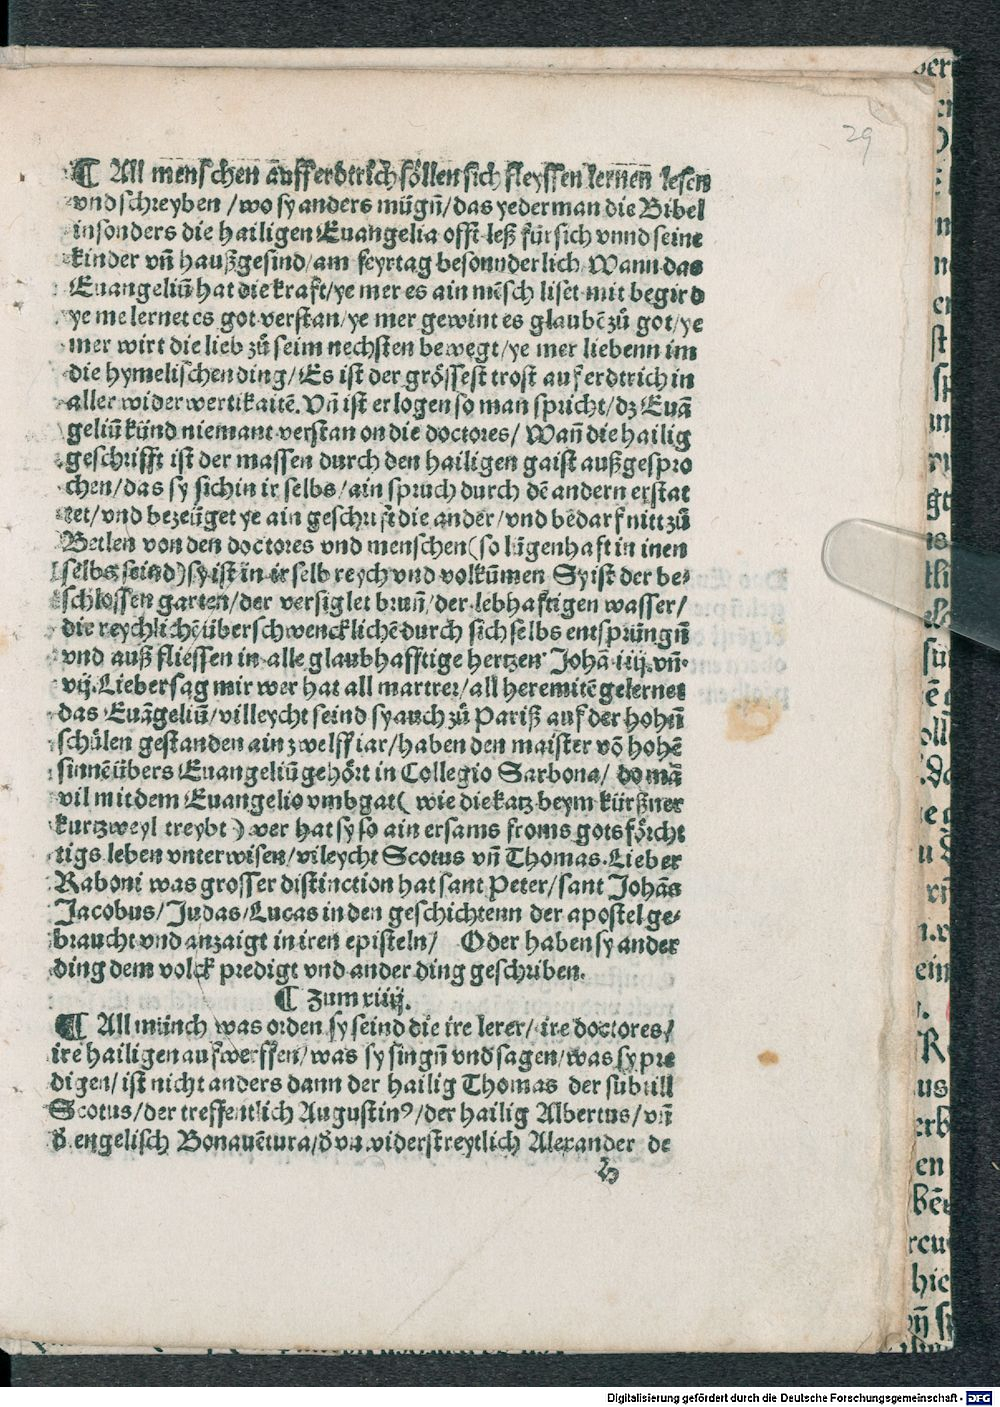 29
¶ All menschen auff erdtrich söllen sich fleyssen lernenn lesen
vnd schreyben / wo sy anders mügn̄ / das yederman die Bibel
insonders die hailigen Euangelia offt leß für sich vnnd seine
kinder vn̄ haußgesind / am feyrtag besonnderlich Wann das
Euangeliū hat die kraft / ye mer es ain mēsch liset mit begird
ye me lernet es got verstan / ye mer gewint es glaubē zů got / ye
mer wirt die lieb zů seim nechsten bewegt / ye mer liebenn im
die hymelischen ding / Es ist der grössest trost auf erdtrich in
aller widerwertikaitē. Vn̄ ist erlogen so man spricht / dz Euā
geliū künd niemant verstan on die doctores / Wan̄ die hailig
geschrifft ist der massen durch den hailigen gaist außgespro
chen / das sy sich in ir selbs / ain spruch durch dē andern erstat
tet / vnd bezeüget ye ain geschrift die ander / vnd bedarf nitt zů
Betlen von den doctores vnd menschen (so lügenhaft in inen
selbs seind) sy ist in ir selb reych vnd volkūmen Sy ist der be-
schlossen garten / der versiglet brun̄ / der lebhaftigen wasser /
die reychlichē überschwencklichē durch sich selbs entsprüngn̄
vnd auß fliessen in alle glaubhafftige hertzen Johā iiij. vn̄
vij. Lieber sag mir wer hat all martrer / all heremitē gelernet
das Euāgeliū / villeycht seind sy auch zů Pariß auf der hohn̄
schůlen gestanden ain zwelff iar / haben den maister vō hohē
sinnē übers Euangeliū gehört in Collegio Sarbona / do mā
vil mit dem Euangelio vmbgat ( wie die katz beym kürßner
kurtzweyl treybt ) wer hat sy so ain ersams froms gots förcht
tigs leben vnterwisen / vileycht Scotus vn̄ Thomas. Lieber
Raboni was grosser distinction hat sant Peter / sant Johās
Jacobus / Judas / Lucas in den geschichtenn der apostel ge-
braucht vnd anzaigt in iren episteln / Oder haben sy ander
ding dem volck predigt vnd ander ding geschriben.
¶ Zum xiiij.
¶ All münch was orden sy seind die ire lerer / ire doctores /
ire hailigen aufwerffen / was sy singn̄ vnd sagen / was sy pre
digen / ist nicht anders dann der hailig Thomas der subtill
Scotus / der treffentlich Augustinꝰ / der hailig Albertus / vn̄
d̄ engelisch Bonauētura / d̄ vn widerstreytlich Alexander de
Digitalisierung gefördert durch die Deutsche Forschungsgemeinschaft - DFG